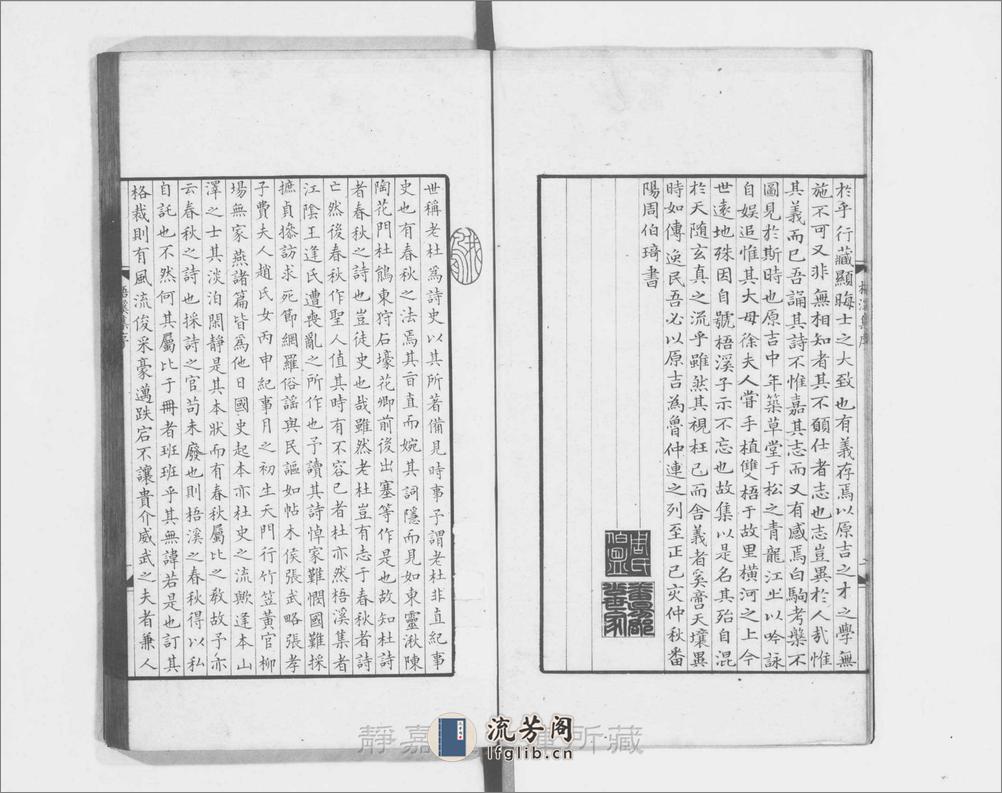 於乎行藏顯晦士之大致也有義存焉以原吉之才之學無
施不可又非無相知者其不願仕者志也志豈異於人哉惟
其義而已吾誦其詩不惟嘉其志而又有感焉白駒考槃不
圖見於斯時也原吉中年築草堂于松之青龍江上以吟詠
自娛追惟其大母徐夫人嘗手植雙梧于故里橫河之上今
世遠地殊因自號梧溪子示不忘也故集以是名其殆自混
於天隨玄真之流乎雖然其視枉己而舍義者奚啻天壤異
時如傳逸民吾必以原吉為魯仲連之列至正己亥仲秋番
陽周伯琦書
周氏
伯昷
世稱老杜為詩史以其所著備見時事予謂老杜非直紀事
史也有春秋之法焉其旨直而婉其詞隱而見如東靈湫陳
陶花門杜鵑東狩石壕花卿前後出塞等作是也故知杜詩
者春秋之詩也豈徒史也哉雖然老杜豈有志于春秋者詩
亡然後春秋作聖人值其時有不容已者杜亦然梧溪集者
江陰王逢氏遭喪亂之所作也予讀其詩悼家難憫國難採
摭貞操訪求死節網羅俗謠與民謳如帖木侯張武略張孝
子費夫人趙氏女丙申紀事月之初生天門行竹笠黃官柳
場無家燕諸篇皆為他日國史起本亦杜史之流歟逢本山
澤之士其淡泊閑靜是其本狀而有春秋屬比之教故予亦
云春秋之詩也採詩之官苟未廢也則梧溪之春秋得以私
自託也不然何其屬比于冊者班班乎其無諱若是也訂其
格裁則有風流俊采豪邁跌宕不讓貴介威武之夫者兼人
梧溪集序
靜嘉 所藏
流芳阁
lfglib.cn